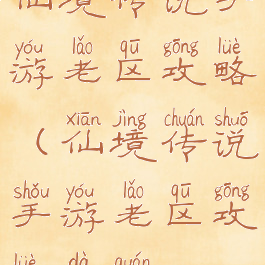 仙境传说手
yóu lǎo qū gōng lüè
游老区攻略
xiān jìng chuán shuō
（仙境传说
shǒu yóu lǎo qū gōng
手游老区攻
lüè dà quán